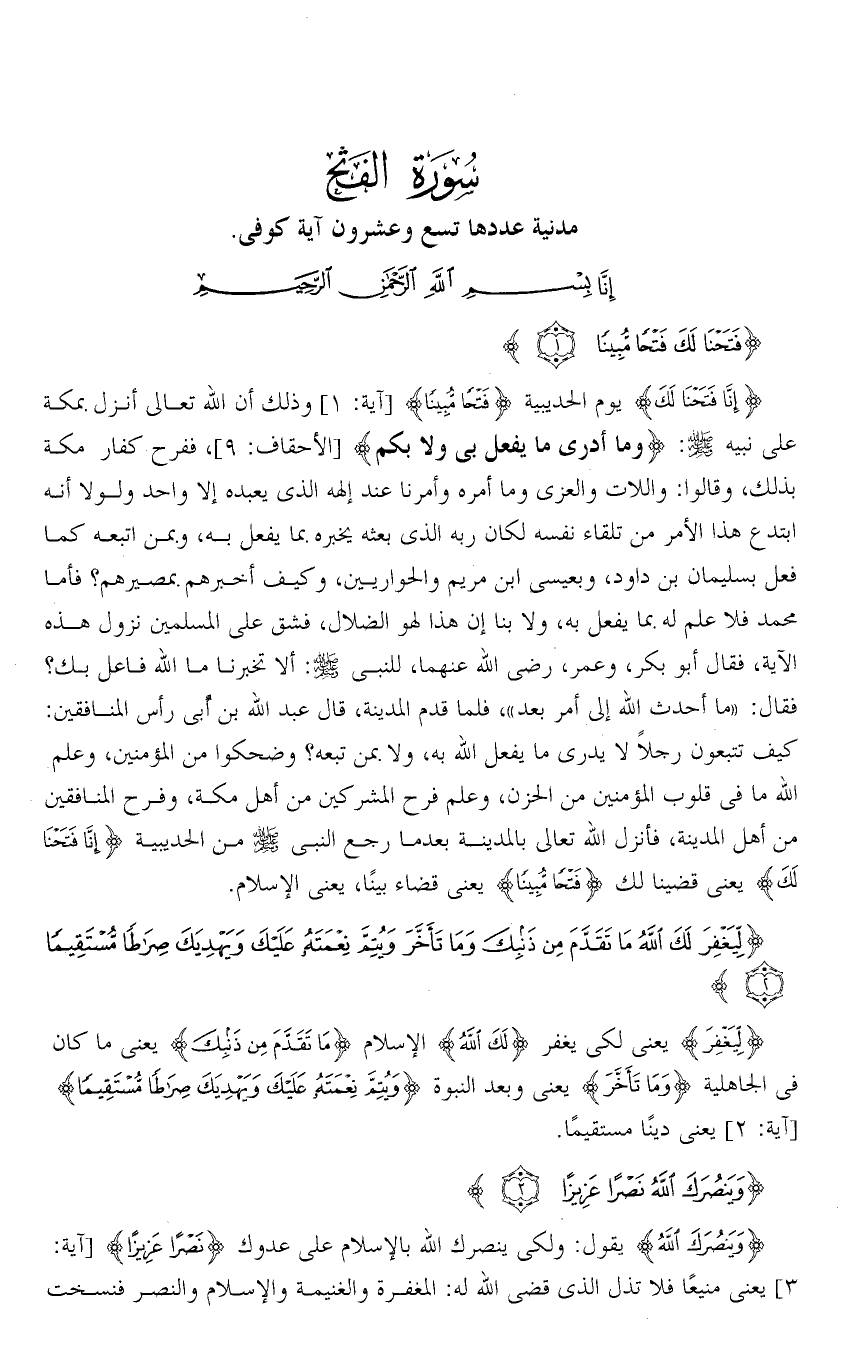 سُورَةُ الفَتْحِ
مدنية عددها تسع وعشرون آية كوفى.
إِنَّا بِسْمِ ٱللَّهِ ٱلرَّحْمَٰنِ ٱلرَّحِيمِ
﴿فَتَحْنَا لَكَ فَتْحًا مُّبِينًا ١ ﴾
﴿إِنَّا فَتَحْنَا لَكَ﴾ يوم الحديبية ﴿فَتْحًا مُّبِينًا﴾ [آية: ١] وذلك أن الله تعالى أنزل بمكة
على نبيه ﷺ: ﴿وما أدرى ما يفعل بى ولا بكم﴾ [الأحقاف: ٩]، ففرح كفار مكة
بذلك، وقالوا: واللات والعزى وما أمره وأمرنا عند إلهه الذى يعبده إلا واحد ولولا أنه
ابتدع هذا الأمر من تلقاء نفسه لكان ربه الذى بعثه يخبره بما يفعل به، وبمن اتبعه كما
فعل بسليمان بن داود، وبعيسى ابن مريم والحواريين، وكيف أخبرهم بمصيرهم؟ فأما
محمد فلا علم له بما يفعل به، ولا بنا إن هذا لهو الضلال، فشق على المسلمين نزول هذه
الآية، فقال أبو بكر، وعمر، رضى الله عنهما، للنبى ﷺ: ألا تخبرنا ما الله فاعل بك؟
فقال: «ما أحدث الله إلى أمر بعد»، فلما قدم المدينة، قال عبد الله بن أبى رأس المنافقين:
كيف تتبعون رجلاً لا يدرى ما يفعل الله به، ولا بمن تبعه؟ وضحكوا من المؤمنين، وعلم
الله ما فى قلوب المؤمنين من الحزن، وعلم فرح المشركين من أهل مكة، وفرح المنافقين
من أهل المدينة، فأنزل الله تعالى بالمدينة بعدما رجع النبى ﷺ من الحديبية ﴿إِنَّا فَتَحْنَا
لَكَ﴾ يعنى قضينا لك ﴿فَتْحًا مُّبِينًا﴾ يعنى قضاء بينًا، يعنى الإسلام.
﴿لِّيَغْفِرَ لَكَ ٱللَّهُ مَا تَقَدَّمَ مِن ذَنۢبِكَ وَمَا تَأَخَّرَ وَيُتِمَّ نِعْمَتَهُۥ عَلَيْكَ وَيَهْدِيَكَ صِرَٰطًا مُّسْتَقِيمًا
٢ ﴾
﴿لِّيَغْفِرَ﴾ يعنى لكى يغفر ﴿لَكَ ٱللَّهُ﴾ الإسلام ﴿مَا تَقَدَّمَ مِن ذَنۢبِكَ﴾ يعنى ما كان
فى الجاهلية ﴿وَمَا تَأَخَّرَ﴾ يعنى وبعد النبوة ﴿وَيُتِمَّ نِعْمَتَهُۥ عَلَيْكَ وَيَهْدِيَكَ صِرَٰطًا مُّسْتَقِيمًا﴾
[آية: ٢] يعنى دينًا مستقيمًا.
﴿وَيَنصُرَكَ ٱللَّهُ نَصْرًا عَزِيزًا ٣ ﴾
﴿وَيَنصُرَكَ ٱللَّهُ﴾ يقول: ولكى ينصرك الله بالإسلام على عدوك ﴿نَصْرًا عَزِيزًا﴾ [آية:
٣] يعنى منيعًا فلا تذل الذى قضى الله له: المغفرة والغنيمة والإسلام والنصر فنسخت